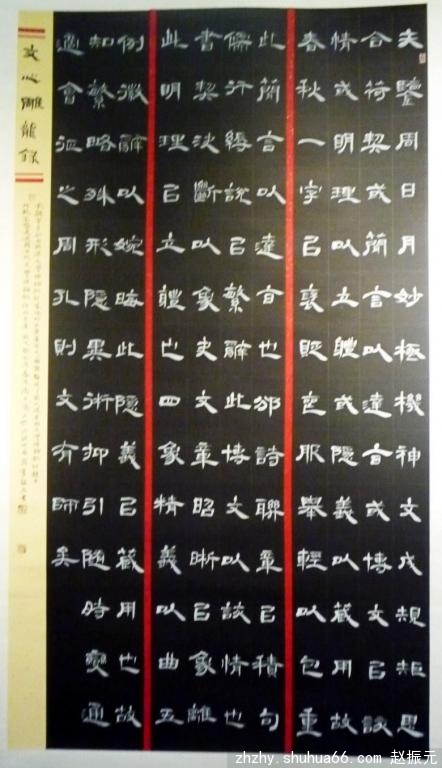 夫鑒周日月妙極機神文成規矩思
合符契或簡言以達旨或博文㠯談
情或明理以立體或隱義以藏用故
春秋一字㠯褒貶喪服舉輕以包重
此簡言以達旨也邠詩聯章㠯積句
儒行縟說㠯繁辭此博文以談情也
書契決斷以象史文章昭晰㠯象離
此明理㠯立體也四象精義以曲五
例微辭以婉晦此隱義㠯藏用也故
知繁略殊形隱異術抑引隨時變通
適會征之周孔則文有師矣
文心雕龍錄
zhzhy.shuhua66.com 赵振元